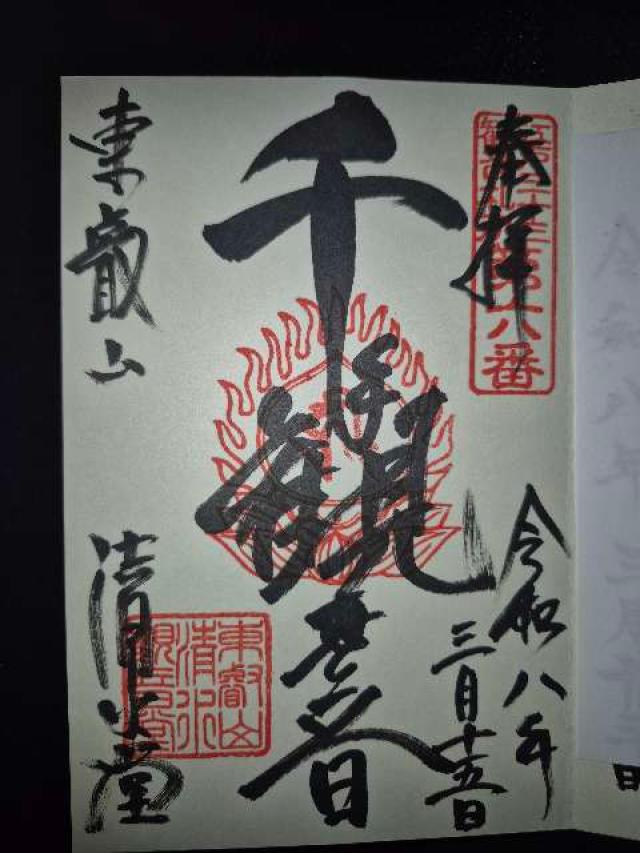 奉拝
令和八年
三月十五日
千手観世音
東叡山
清水堂
東叡山
清水
観音堂